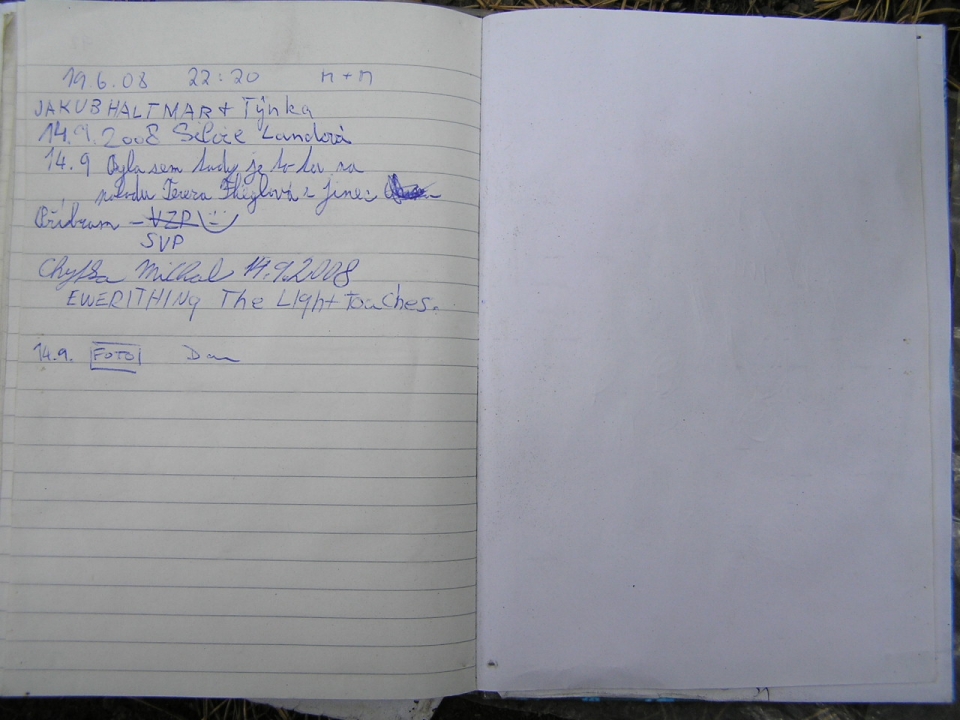 19.6.08 22:20 n+n
JAKUB HALTMAR + Týnka
14.9.2008 Silvie Landová
14.9 Byla sem tady je to tu na
Tereza z Jinec
Příbram - VZP
SVP
Michal 14.9.2008
EWERITHINg The Light Touches.
14.9. FOTO Dan